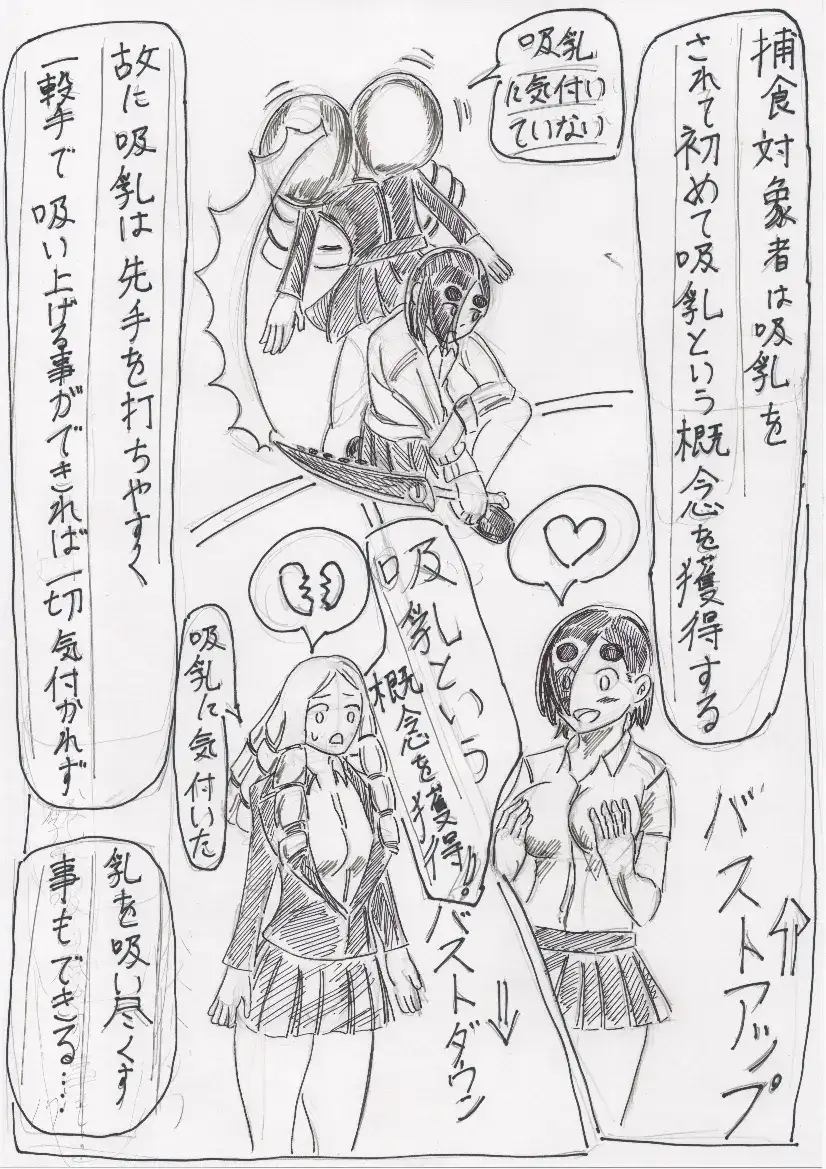 捕食対象者は吸乳を
されて初めて吸乳という概念を獲得する
吸乳
に気付い
ていない
故に吸乳は先手を打ちやすく
一撃手で吸い上げる事ができれば一切気付かれず
バストアップ
吸乳という
概念を獲得!!
バストダウン
吸乳に気付いた
乳を吸い尽くす
事もできる…‥